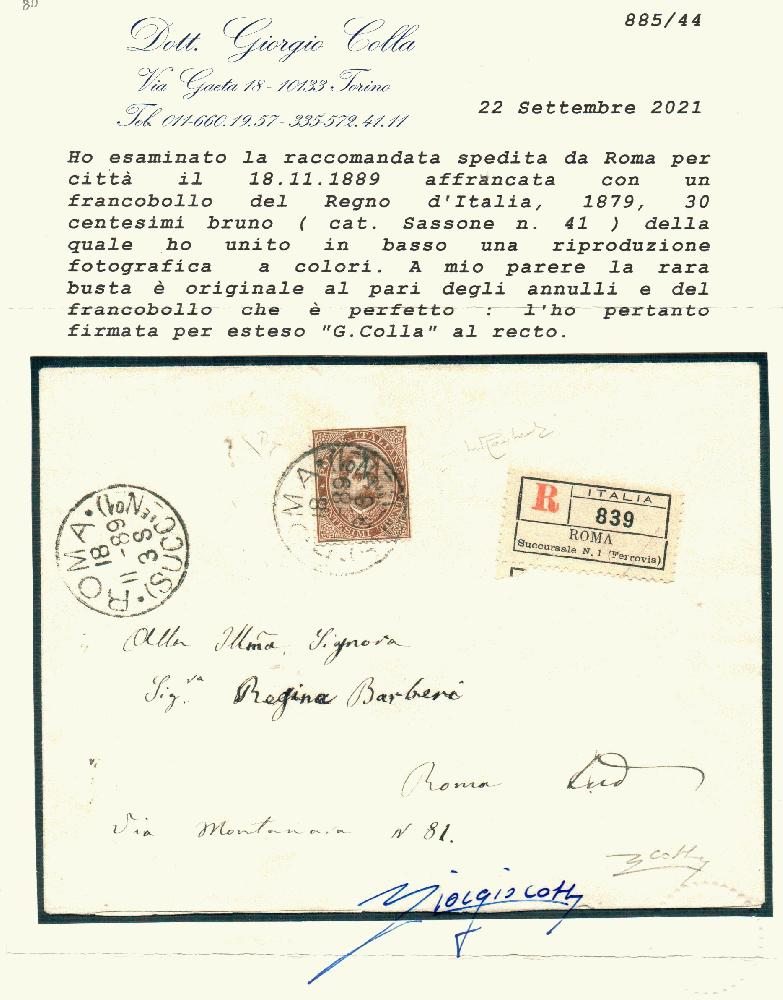 885/44
Dott. Giorgio Colla
Via Gaeta 18 - 10133 Torino
Tel. 011-660.19.57 - 335-572.41.11
22 Settembre 2021
Ho esaminato la raccomandata spedita da Roma per
città il 18.11.1889 affrancata con un
francobollo del Regno d'Italia, 1879, 30
centesimi bruno ( cat. Sassone n. 41 ) della
quale ho unito in basso una riproduzione
fotografica a colori. A mio parere la rara
busta è originale al pari degli annulli e del
francobollo che è perfetto : l'ho pertanto
firmata per esteso "G.Colla" al recto.
ROMA
18
ROMA (SUCC.LE No1)
18 11 - 89
3 S
R
ITALIA
839
ROMA
Succursale N. 1 (Ferrovia)
Alla Illma. Signora
Sig.ra Regina Barberi
Roma
Via Montanara N 81.
G Colla
Giorgio Colla